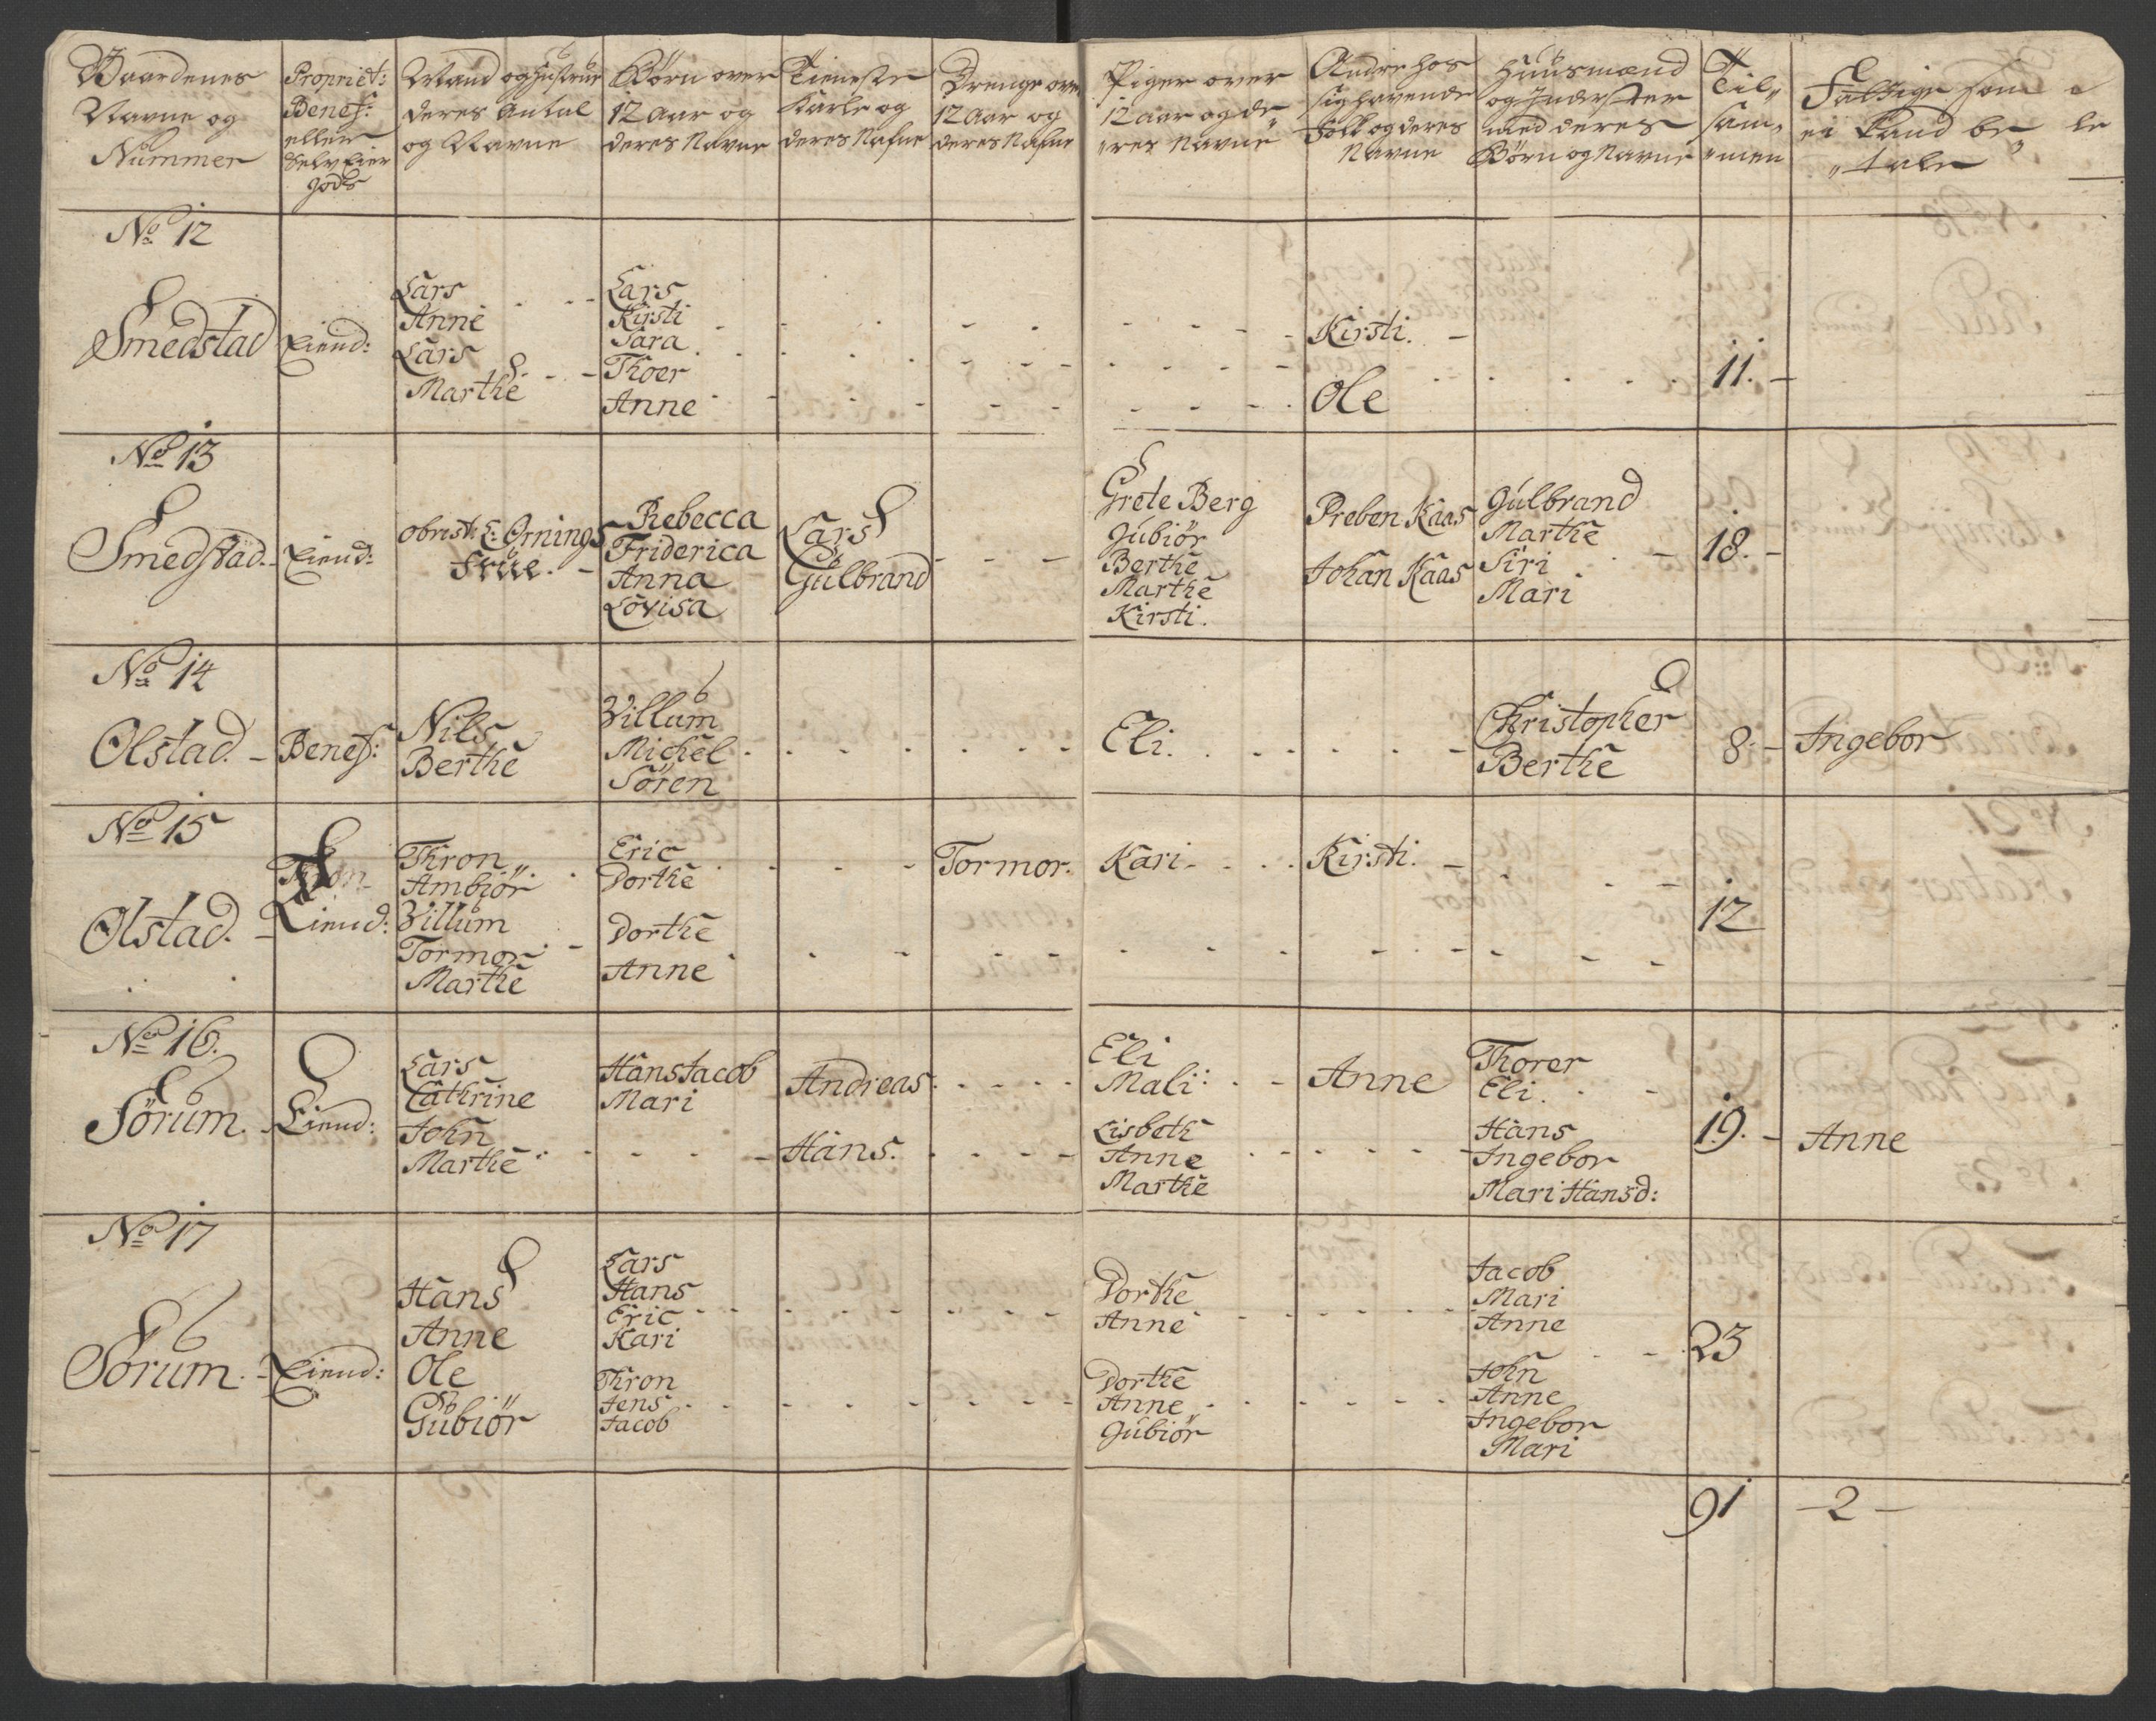 Gaardenes
Navne og
Nummer
Propriet:
Benef:
eller
Selv Eier
gods
Mand og Hustrue
deres Antal
og Navne
Børn over
12 Aar og
deres Navne
Tieneste
Karle og
deres Nafne
Drenge over
12 Aar og
deres Nafne
Piger over
12 aar og de
res Navne
Andre hos
sig havende
Folk og deres
Navne
Huusmænd
og Inderster
med deres
Børn og Navne
Til
sam
men
Fattige som
ei kand be
tale
No 12
Smedstad
Eiend:
Lars
Anne
Lars
Marthe
Lars
Kirsti
Sara
Thoer
Anne
Kirsti.
Ole
11.
No 13
Smedstad.
Eiend:
obrist: L: Ornings
Frue.
Rebecca
Friderica
Anna
Lovisa
Lars
Gulbrand
Grete Berg
Gubiør
Berthe
Marthe
Kirsti.
Preben Kaas
Johan Kaas
Gulbrand
Marthe
Siri
Mari
18.
No 14
Olstad.
Benef:
Nils
Berthe
Villum
Michel
Søren
Eli.
Christopher
Berthe
8.
Ingebor
No 15
Olstad.
Eiend:
Thron
Ambiør
Villum
Tormor
Marthe
Eric
Dorthe
Dorthe
Anne
Tormor.
Kari
Kirsti.
12
No 16.
Sørum.
Eiend:
Lars
Cathrine
John
Marthe
Hans Jacob
Mari
Andreas.
Hans.
Eli
Mali
Lisbeth
Anne
Marthe
Anne
Thorer
Eli.
Hans
Ingebor
Mari Hansd:
19.
Anne
No 17
Sørum.
Eiend:
Hans
Anne
Ole
Gubiør
Lars
Hans
Eric
Kari
Thron
Jens
Jacob
Dorthe
Anne
Dorthe
Anne
Gubiør
Jacob
Mari
Anne
John
Anne
Ingebor
Mari
23
91
-2-